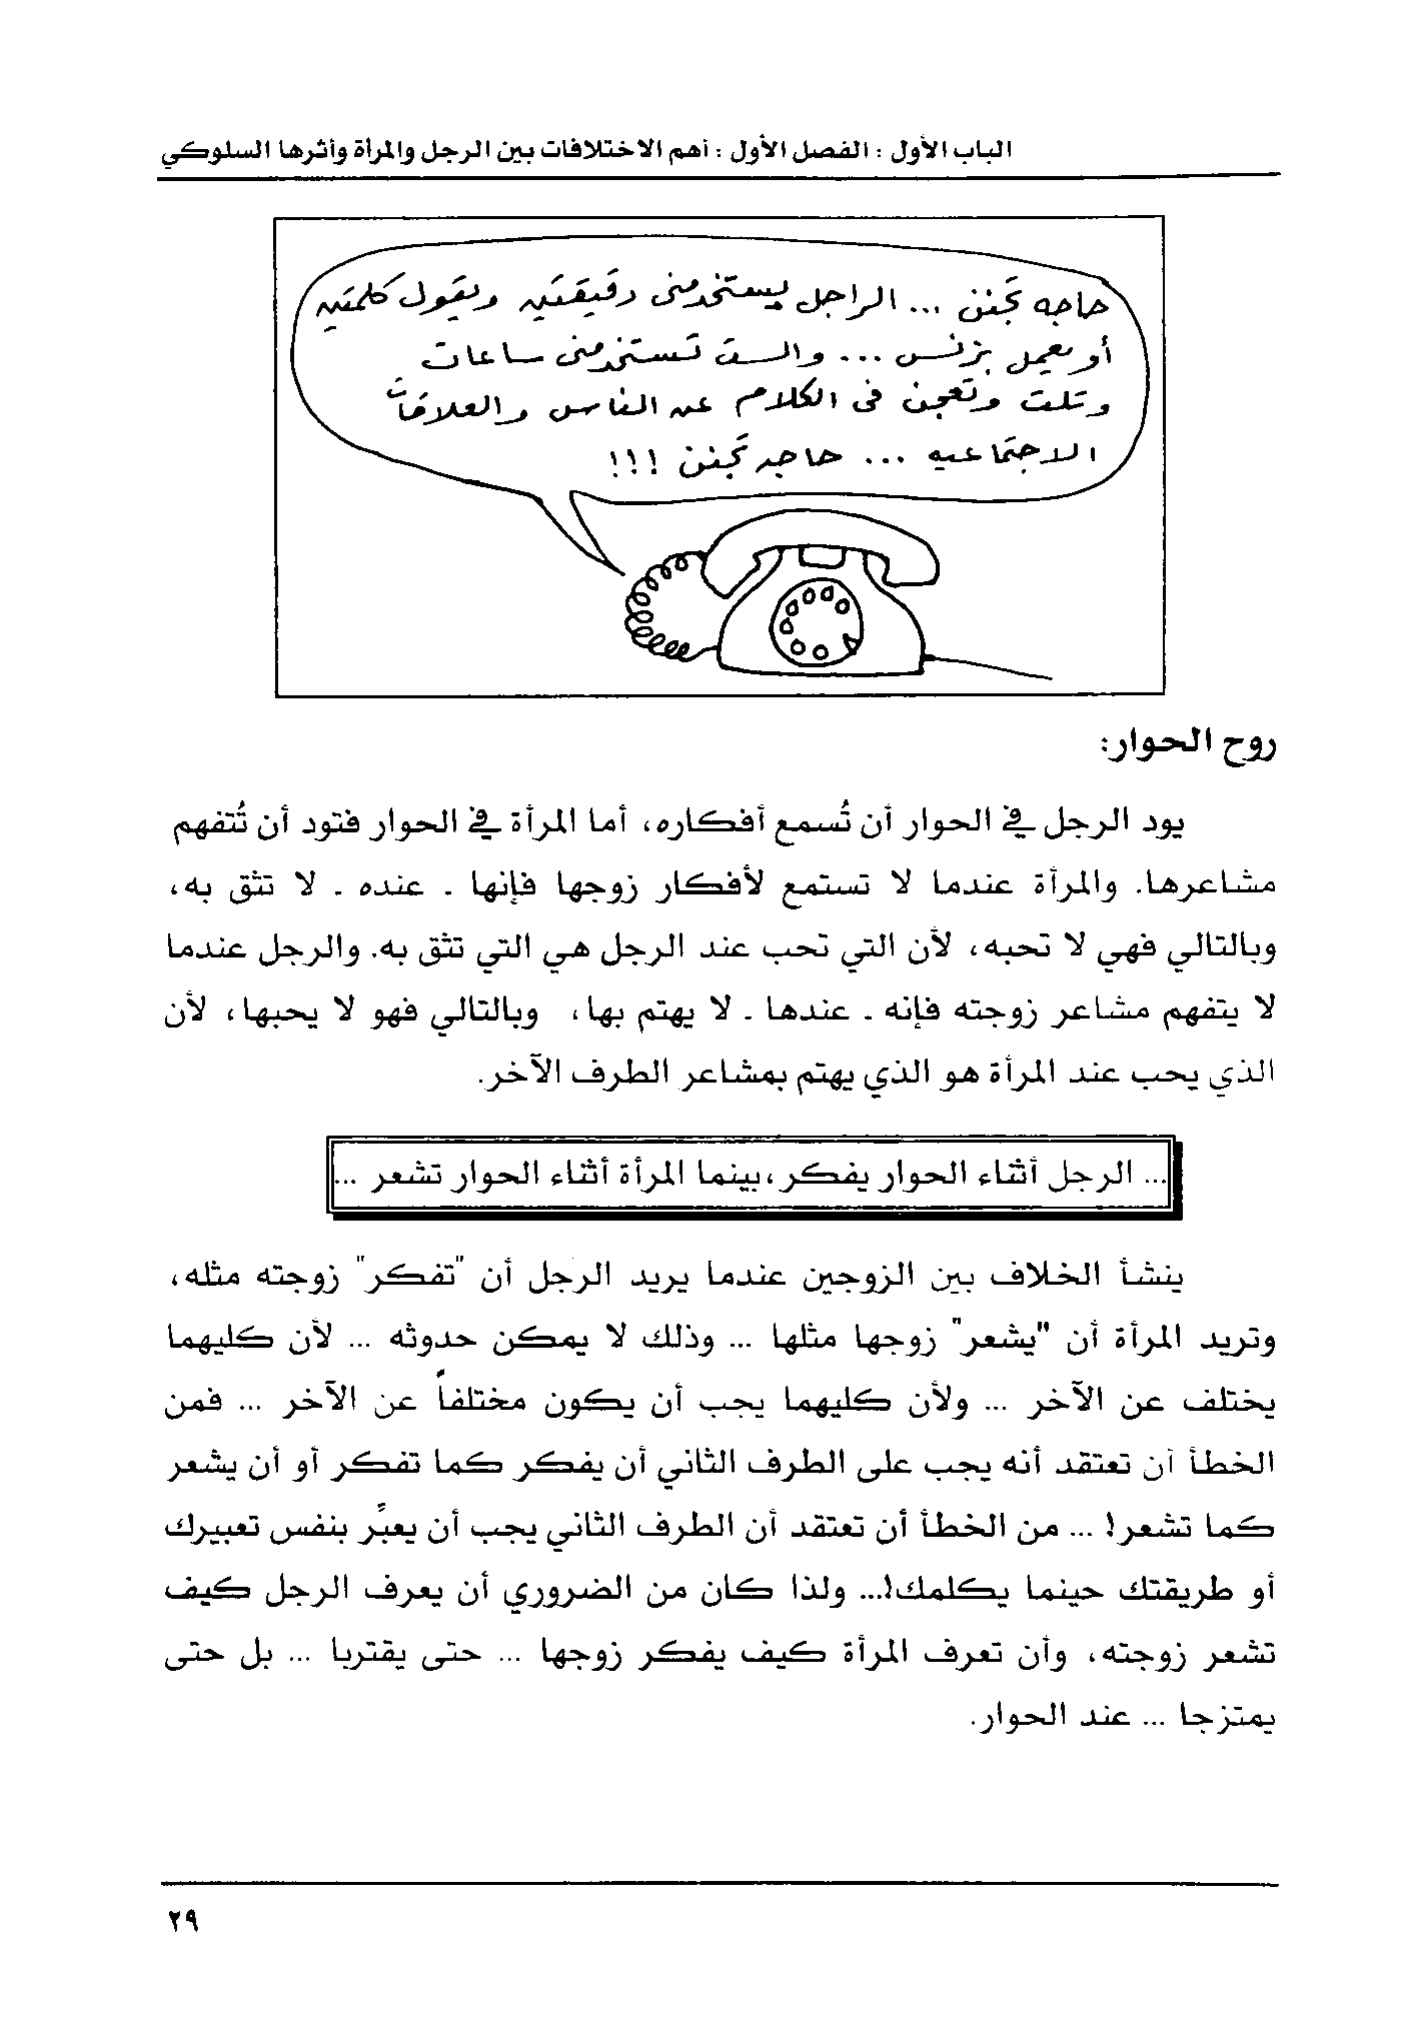 الباب الأول : الفصل الأول : أهم الاختلافات بين الرجل والمرأة وأثرها السلوكي
حاجه تجنن ... الراجل يستخدمنى دقيقتين ويقول كلمتين
أو يعمل بزنس ... والست تستخدمنى ساعات
وتلت وتعجن فى الكلام عن الناس والعلاقات
الاجتماعيه ... حاجه تجنن !!!
روح الحوار:
يود الرجل في الحوار أن تُسمع أفكاره، أما المرأة في الحوار فتود أن تُتفهم
مشاعرها. والمرأة عندما لا تستمع لأفكار زوجها فإنها - عنده - لا تثق به،
وبالتالي فهي لا تحبه، لأن التي تحب عند الرجل هي التي تثق به. والرجل عندما
لا يتفهم مشاعر زوجته فإنه - عندها - لا يهتم بها، وبالتالي فهو لا يحبها، لأن
الذي يحب عند المرأة هو الذي يهتم بمشاعر الطرف الآخر.
... الرجل أثناء الحوار يفكر، بينما المرأة أثناء الحوار تشعر ...
ينشأ الخلاف بين الزوجين عندما يريد الرجل أن "تفكر" زوجته مثله،
وتريد المرأة أن "يشعر" زوجها مثلها ... وذلك لا يمكن حدوثه ... لأن كليهما
يختلف عن الآخر ... ولأن كليهما يجب أن يكون مختلفاً عن الآخر ... فمن
الخطأ أن تعتقد أنه يجب على الطرف الثاني أن يفكر كما تفكر أو أن يشعر
كما تشعر! ... من الخطأ أن تعتقد أن الطرف الثاني يجب أن يعبِّر بنفس تعبيرك
أو طريقتك حينما يكلمك!... ولذا كان من الضروري أن يعرف الرجل كيف
تشعر زوجته، وأن تعرف المرأة كيف يفكر زوجها ... حتى يقتربا ... بل حتى
يمتزجا ... عند الحوار.
٢٩